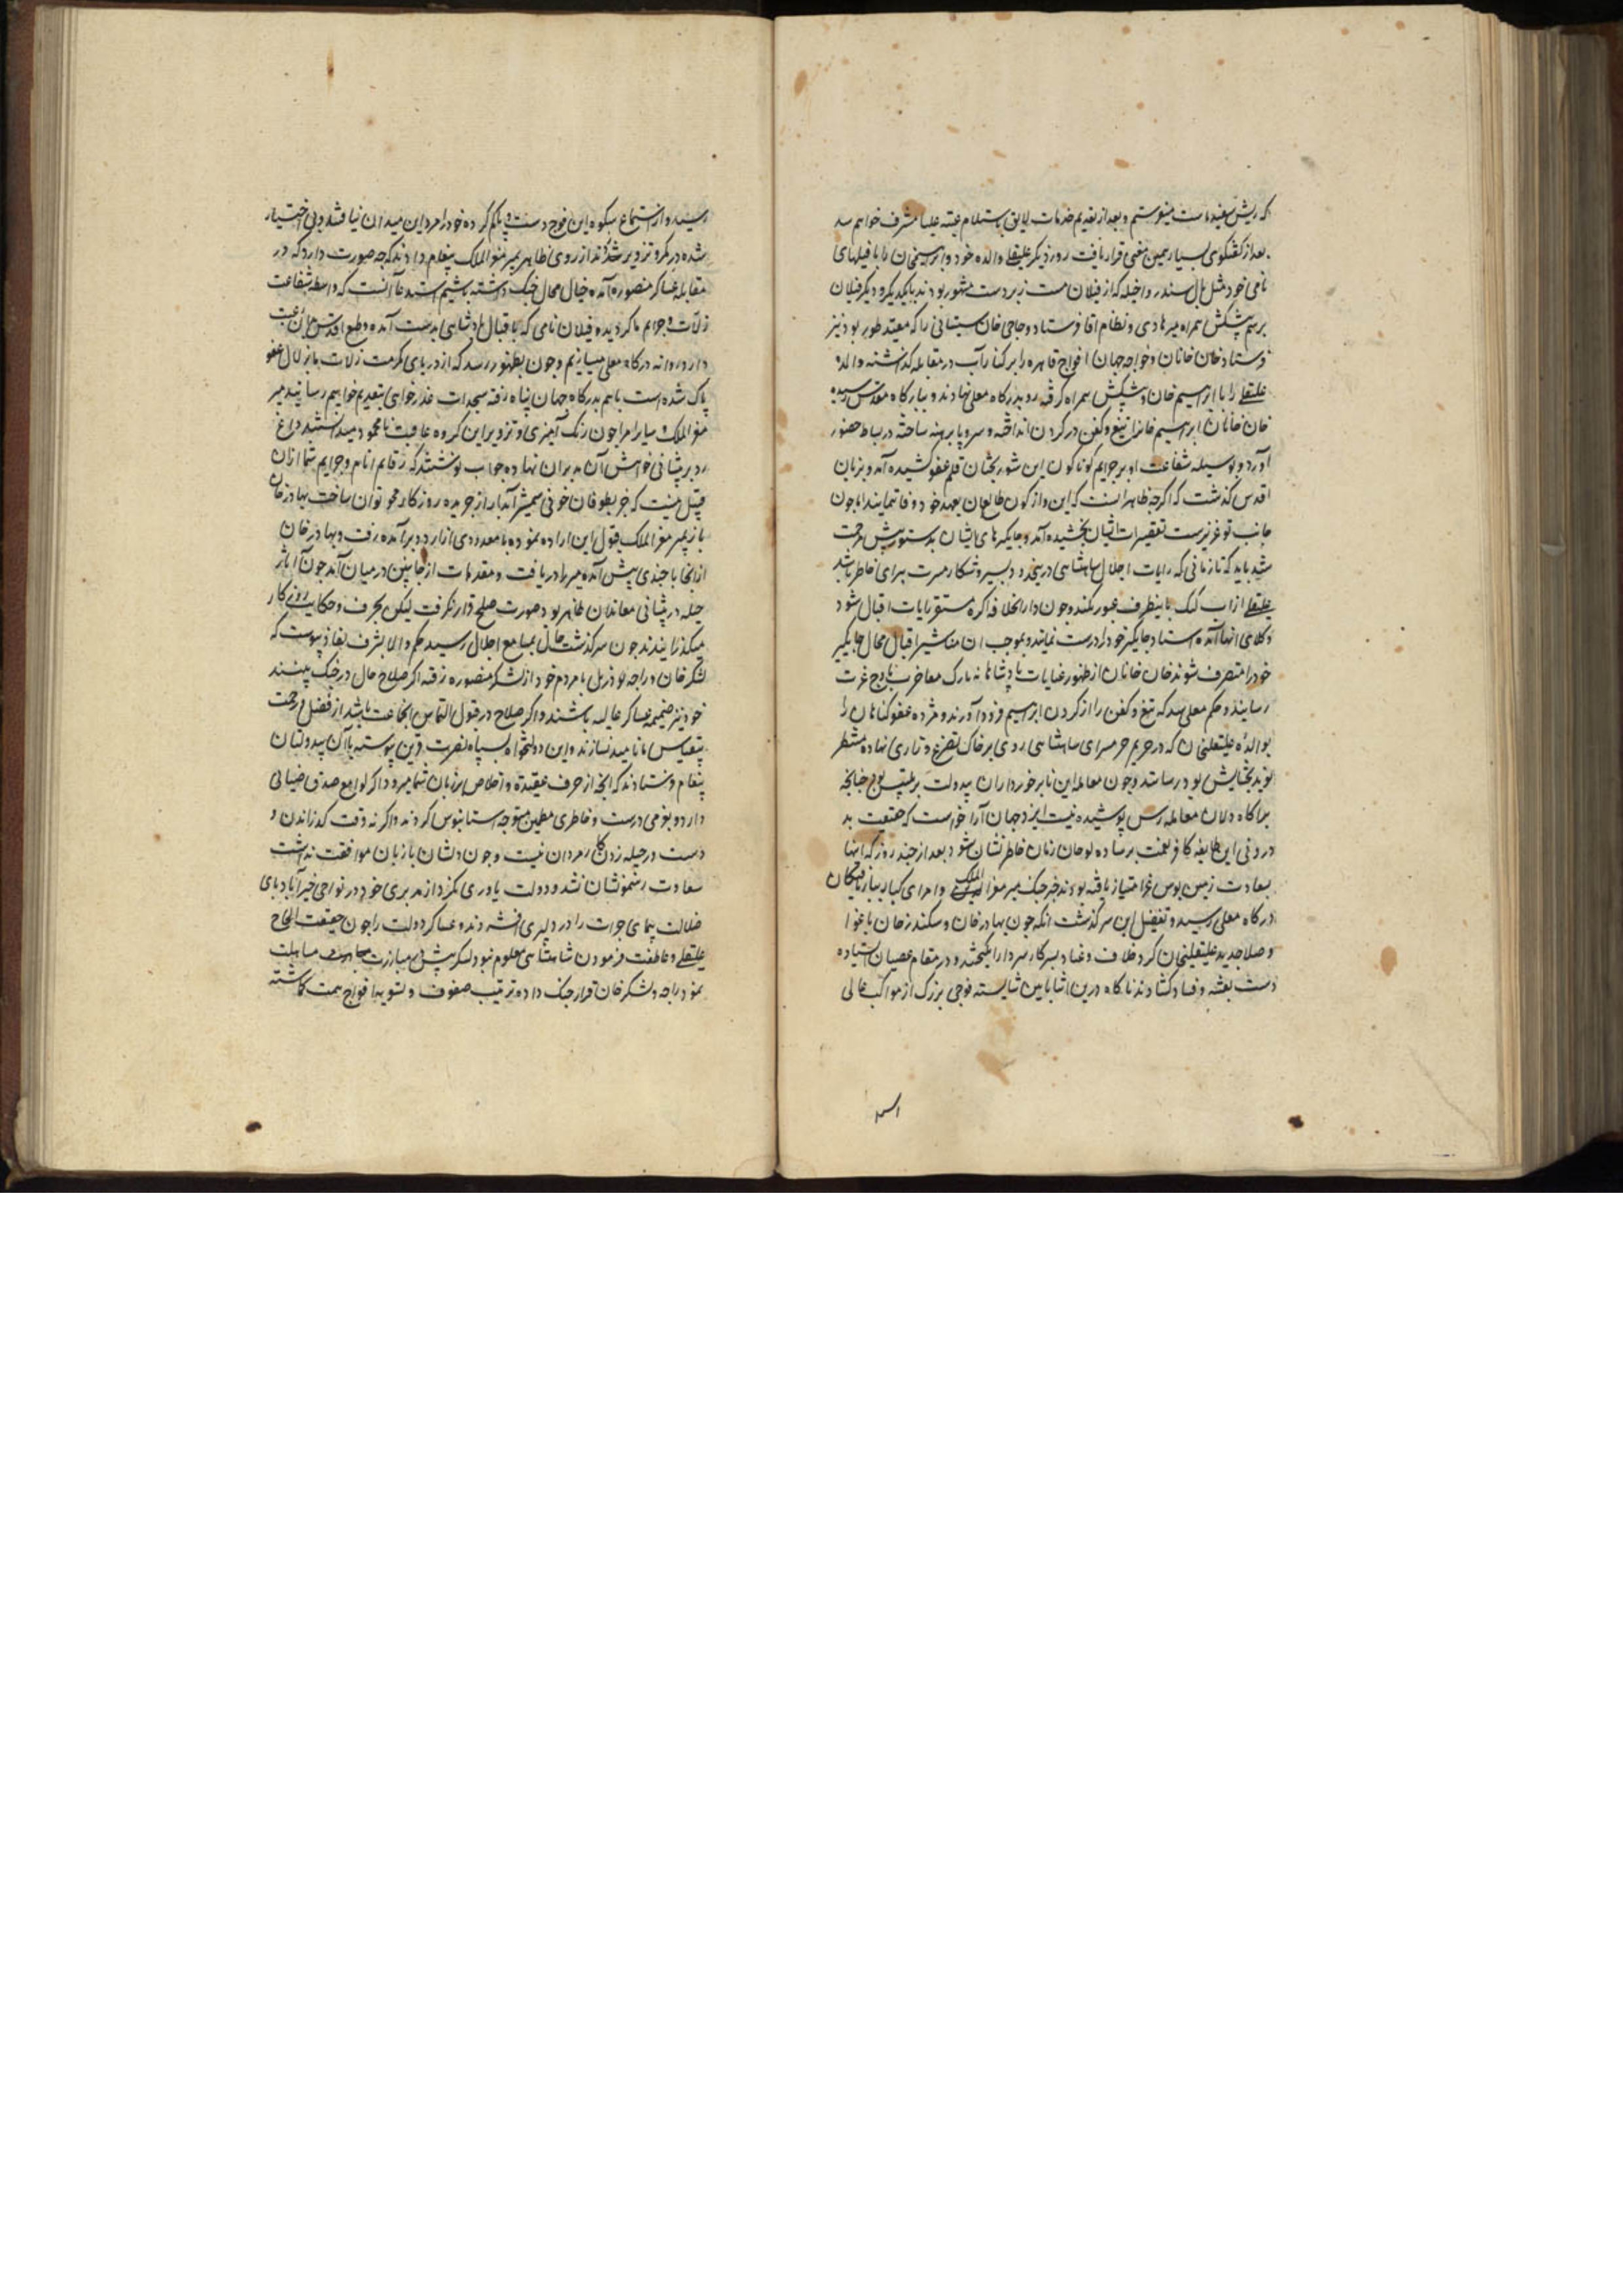 که ریش سفید ماست میفرستم و بعد از تقدیم خدمات لایق باستلام عتبه علیا مشرف خواهم شد
بعد از گفتگوی بسیار همین معنی قرار یافت روز دیگر علیقلی والده خود و ابراهیم خان را با فیلهای
نامی خود مثل بال سندر و اخیله که از فیلان مست زبردست مشهور بودند بایکدیگر و دیگر فیلان
برسم پیشکش همراه میر هادی و نظام اقا فرستاد و حاجی خان سیستانی را که معتمد طور بود نیز
فرستاد خان خانان و خواجه جهان افواج قاهره را بر کنار آب در مقابله گذاشته والده
علیقلی را با ابراهیم خان و پیشکش همراه گرفته رو بدرگاه معلی نهادند و ببارگاه مقدس رسیده
خان خانان ابراهیم خانرا تیغ و کفن در گردن انداخته و سر و پا برهنه ساخته در بساط حضور
آورد و بوسیله شفاعت او بر جرایم گوناگون این شوربختان قلم عفو کشیده آمد و بزبان
اقدس گذشت که اگرچه ظاهر است که این واژگون طالعان بعهد خود وفا ننمایند اما چون
جانب تو عزیز است تقصیرات ایشان بخشیده آمد و جایگیرهای ایشان بدستور پیش مرحمت
شد باید که تا زمانی که رایات اجلال شاهنشاهی در ینحدود بسیر و شکار مسرت پیرای خاطر باشد
علیقلی از آب گنگ باینطرف عبور نکند و چون دارالخلافه اگره مستقر رایات اقبال شود
وکلای انها آمده اسناد جایگیر خود را درست نمایند و بموجب ان مناشیر اقبال محال جایگیر
خود را متصرف شوند خان خانان از ظهور عنایات پادشاهانه تارک مفاخرت باوج عزت
رسانید و حکم معلی شد که تیغ و کفن را از گردن ابراهیم فرود آورند و مژده عفو گناهان را
بوالده علیقلی خان که در حریم حرمسرای شاهنشاهی روی بر خاک تضرع و زاری نهاده منتظر
نوید بخشایش بود رسانند و چون معامله این نابرخورداران بیدولت بر تلبیس بود چنانچه
بر اگاه دلان معامله رس پوشیده نیست ایزد جهان آرا خواست که حقیقت بد
درونی این طایفه کافر نعمت بر ساده لوحان زمان خاطر نشان شود بعد از چند روز که انها
بسعادت زمین بوس عز امتیاز یافته بودند خبر جنگ میر معز الملک و امرای کبار ببار یافتگان
درگاه معلی رسید و تفصیل این سرگذشت انکه چون بهادر خان و سکندر خان باغوا
و صلاحدید علیقلی خان گرد خلاف و عناد بسرکار سروار انگیختند و در مقام عصیان ایستاده
دست بفتنه و فساد گشادند ناگاه درین اثنا باین شایسته فوجی بزرگ از مواکب عالی
رسید و از استماع شکوه این فوج دست و پا گم کرده خود را مرد این میدان نیافتند و بی اختیار
شده در مکر و تزویر شدند از روی ظاهر بمیر معز الملک پیغام دادند که چه صورت دارد که در
مقابله عساکر منصوره آمده خیال محال جنگ داشته باشیم استدعا آنست که واسطه شفاعت
زلات و جرایم ما گردیده فیلان نامی که باقبال پادشاهی بدست آمده و طبع اقدس بان رغبت
دارد روانه درگاه معلی میسازیم و چون بظهور رسد که از دریای مکرمت زلات ما بزلال عفو
پاک شده است باهم بدرگاه جهان پناه رفته سجدات عذرخواهی بتقدیم خواهیم رسانید میر
معز الملک و سایر امرا چون رنگ آمیزی و تزویر این گروه عاقبت نامحمود میدانستند داغ
رد بر پیشانی خواهش آن مدبران نهاده جواب نوشتند که رقایم اثام و جرایم شما ازان
قبیل نیست که جز بطوفان خونی شمشیر آبدار از جریده روزگار محو توان ساخت بهادر خان
باز بمیر معز الملک قول این اراده نموده با معدودی از اردو برآمده رفت و بهادر خان
از انجا با چندی پیش آمده میر را دریافت و مقدمات از جانبین در میان آمد چون آثار
حیله در پیشانی معاندان ظاهر بود صورت صلح قرار نگرفت لیکن بحرف و حکایت روزگار
میگذرانیدند چون سرگذشت حال بمسامع اجلال رسید حکم والا شرف نفاذ پیوست که
لشکر خان و راجه تودرمل با مردم خود از لشکر منصوره رفته اگر صلاح حال در جنگ بینند
خود نیز ضمیمه عساکر عالیه باشند و اگر صلاح در قبول التماس انجماعت باشد از فضل و رحمت
بیقیاس نا امید نسازند و این دولتخواه بسپاه نصرت قرین پیوسته باآن بیدولتان
پیغام فرستادند که انچه از حرف عقیدة و اخلاص بر زبان شما میرود اگر لوامع صدق ضیائی
دارد بقومی درست و خاطری مطمین متوجه استانبوس گردند و اگر نه وقت گذراندن و
دست در حیله زدن کار مردان نیست و چون دلشان با زبان موافقت نداشت
سعادت رهنمونشان نشد و دولت یاوری نکرد از مدبری خود در نواحی خیرآباد پای
ضلالت پیمای جرات را در دلیری افشردند و عساکر دولت را چون حقیقت الحاح
علیقلی و عاطفت فرمودن شاهنشاهی معلوم نبود لشکر پیش مبارزت مساهلت
نمود راجه و لشکر خان قرار جنگ داده ترتیب صفوف و تسویه افواج همت گماشته